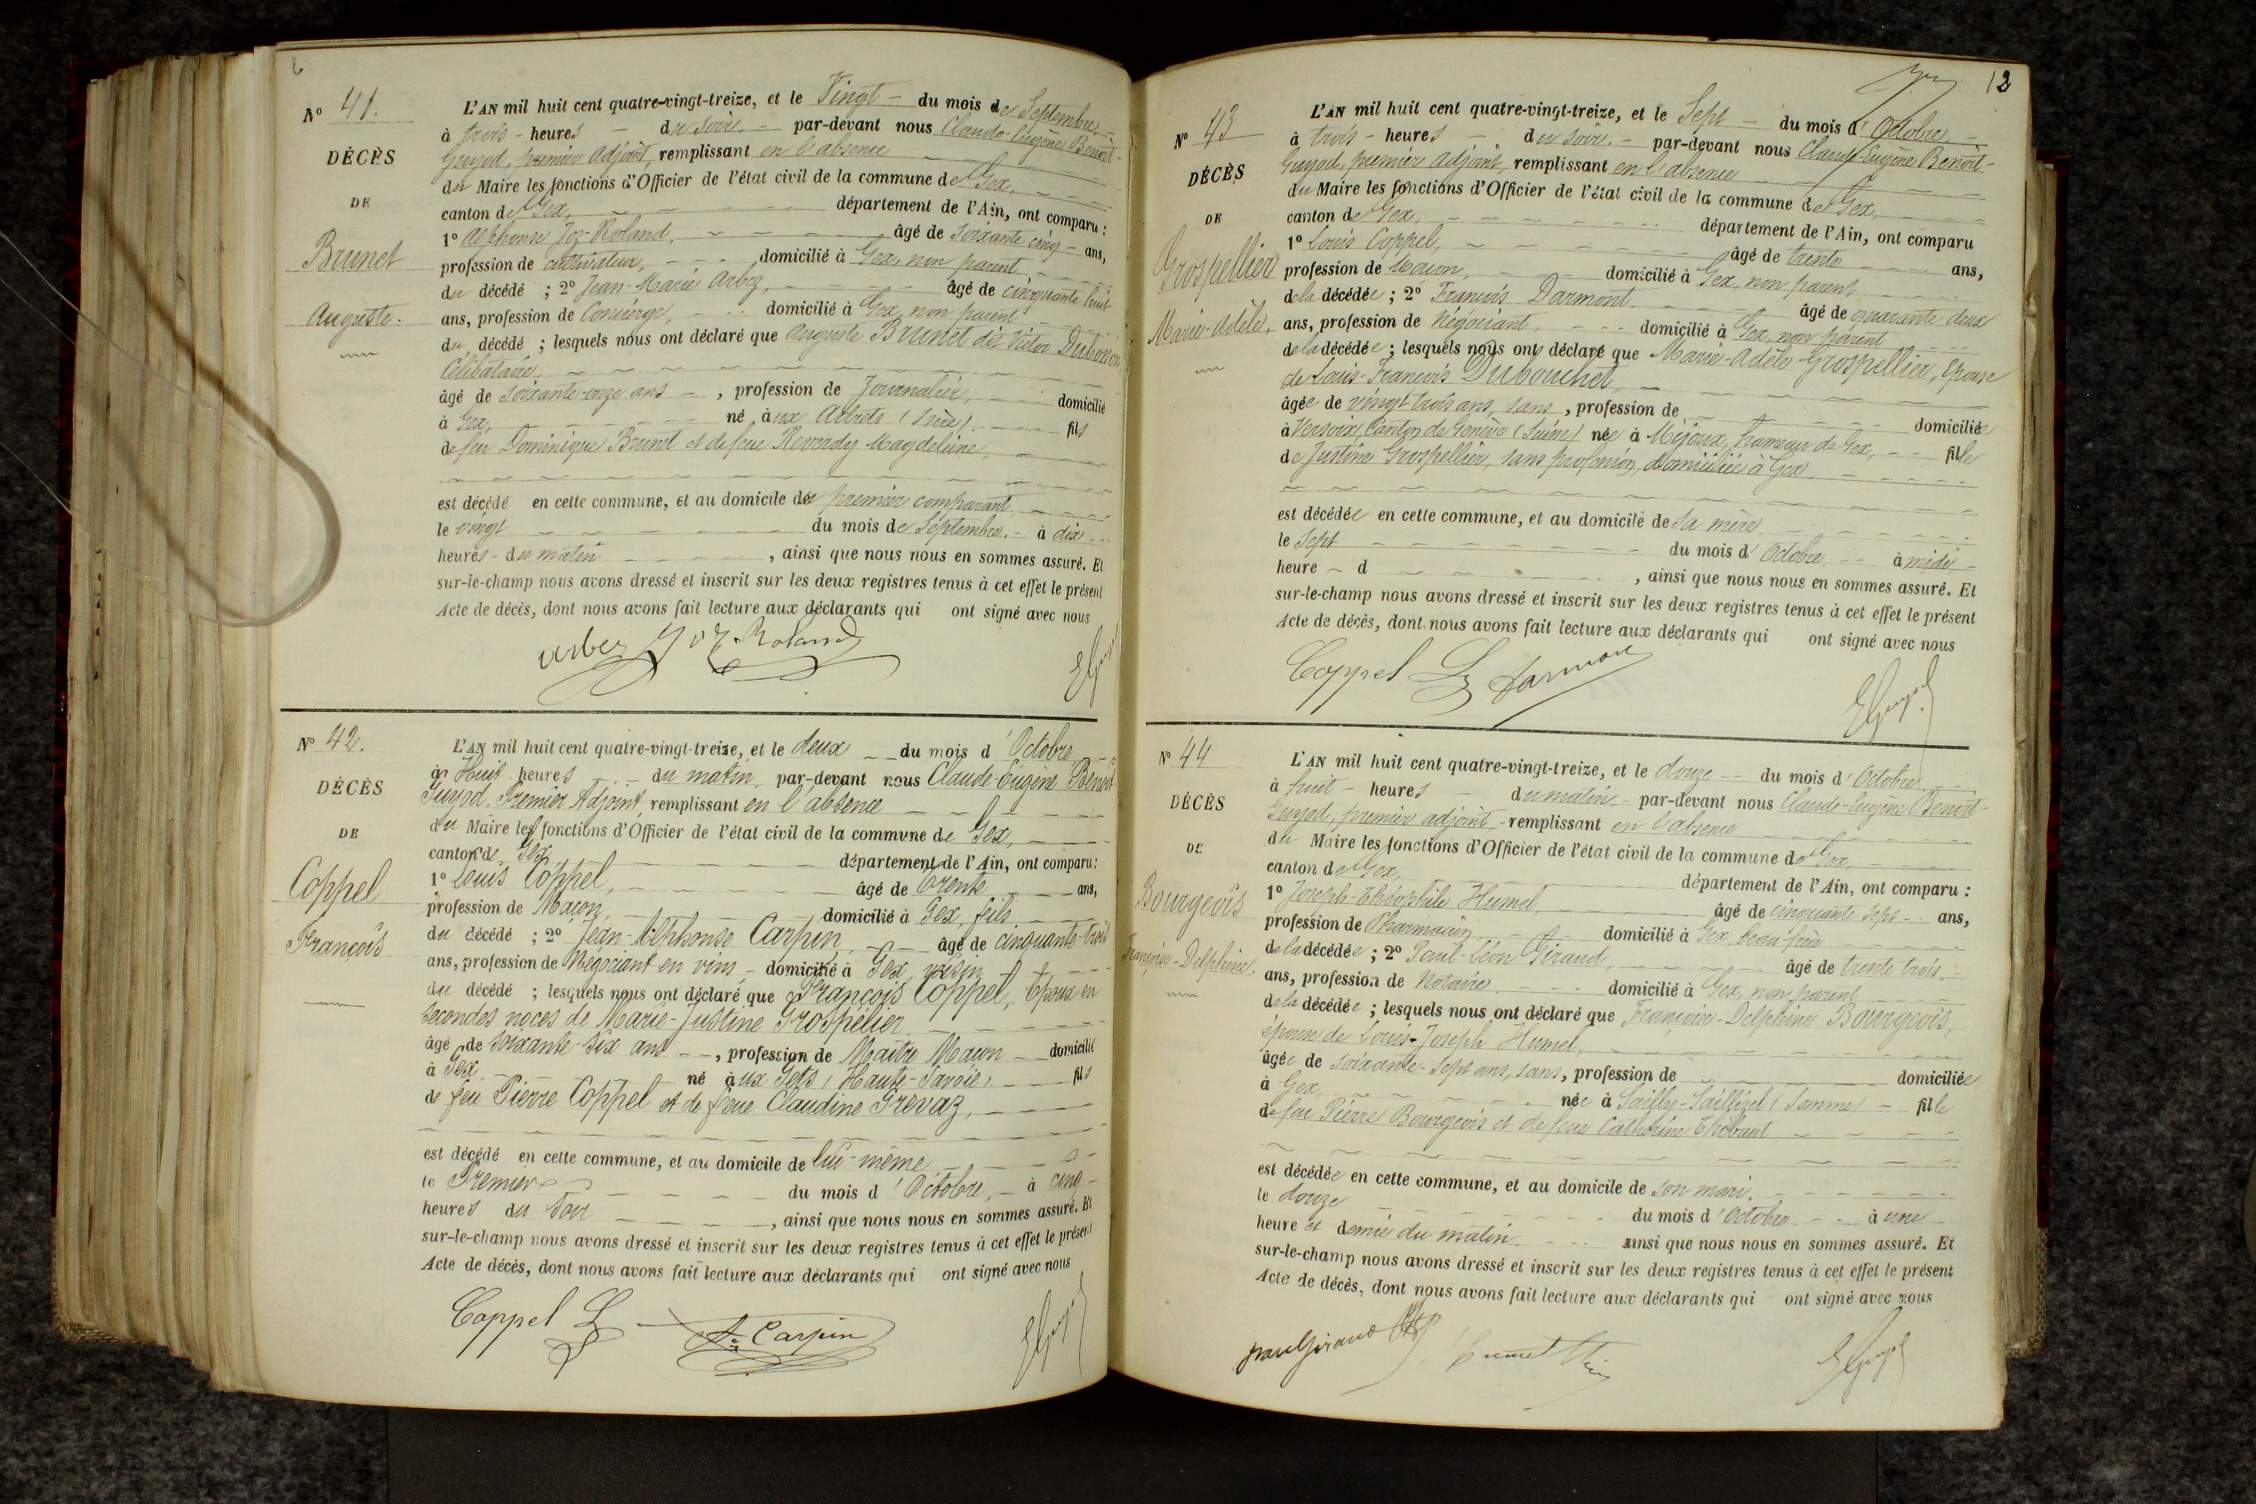 6
N° 41.
DÉCÈS
DE
Brunet
Auguste.
L'AN mil huit cent quatre-vingt-treize, et le Vingt - du mois de Septembre,
à trois - heures du soir. - par-devant nous Claude-Eugène Benoit-
Guyod, premier Adjoint, remplissant en l'absence
du Maire les fonctions d'Officier de l'état civil de la commune de Gex,
canton de Gex, département de l'Ain, ont comparu :
1° Alphonse Joz-Roland, âgé de soixante cinq - ans,
profession de cultivateur, domicilié à Gex, non parent
du décédé ; 2° Jean-Marie Arbez, âgé de cinquante huit
ans, profession de Concierge, domicilié à Gex, non parent
du décédé ; lesquels nous ont déclaré que Auguste Brunet dit Victor
Célibataire,
âgé de soixante-onze ans - , profession de Journalier, domicilié
à Gex, né aux fils
de feu Dominique Brunet et de feue Reverdy Magdeleine,
est décédé en cette commune, et au domicile du premier comparant
le vingt du mois de Septembre. - à dix
heures - du matin , ainsi que nous nous en sommes assuré. Et
sur-le-champ nous avons dressé et inscrit sur les deux registres tenus à cet effet le présent
Acte de décès, dont nous avons fait lecture aux déclarants qui ont signé avec nous
arbez Joz-Roland EGuyod
N° 42.
DÉCÈS
DE
Coppel
François
L'AN mil huit cent quatre-vingt-treize, et le deux du mois d'Octobre,
à Huit heures du matin, par-devant nous Claude-Eugène Benoit-
Guyod, Premier Adjoint, remplissant en l'absence
du Maire les fonctions d'Officier de l'état civil de la commune de Gex,
canton de Gex, département de l'Ain, ont comparu :
1° Louis Coppel, âgé de Trente ans,
profession de Maçon, domicilié à Gex, fils
du décédé ; 2° Jean-Alphonse Carpin, âgé de cinquante-trois
ans, profession de Négociant en vins - domicilié à Gex, voisin
du décédé ; lesquels nous ont déclaré que François Coppel, Epoux en
secondes noces de Marie-Justine Grospélier
âgé de soixante-six ans - , profession de Maître Maçon - domicilié
à Gex né aux Gets (Haute-Savoie) fils
de feu Pierre Coppel et de feue Claudine Grevaz,
est décédé en cette commune, et au domicile de lui-même
le Premier du mois d'Octobre, - à cinq -
heures du soir , ainsi que nous nous en sommes assuré. Et
sur-le-champ nous avons dressé et inscrit sur les deux registres tenus à cet effet le présent
Acte de décès, dont nous avons fait lecture aux déclarants qui ont signé avec nous
Coppel L A. Carpin EGuyod
12
N° 43
DÉCÈS
DE
Grospellier
Marie-Adèle,
L'AN mil huit cent quatre-vingt-treize, et le Sept - du mois d'Octobre, -
à trois - heures du soir. - par-devant nous Claude-Eugène Benoit-
Guyod, premier Adjoint, remplissant en l'absence
du Maire les fonctions d'Officier de l'état civil de la commune de Gex,
canton de Gex, département de l'Ain, ont comparu
1° Louis Coppel, âgé de trente ans,
profession de Maçon, domicilié à Gex, non parent
de la décédée ; 2° François Darmont, âgé de quarante deux
ans, profession de Négociant, domicilié à Gex, non parent
de la décédée ; lesquels nous ont déclaré que Marie-Adèle Grospellier, Epouse
de Louis-François Dubouchet,
âgée de vingt trois ans, sans, profession de domiciliée
à Versoix, Canton de Genève (Suisse) née à Mijoux, hameau de Gex, fille
de Justine Grospellier, sans profession, domiciliée à Gex.
est décédée en cette commune, et au domicile de sa mère
le Sept du mois d'Octobre à midi -
heure - d , ainsi que nous nous en sommes assuré. Et
sur-le-champ nous avons dressé et inscrit sur les deux registres tenus à cet effet le présent
Acte de décès, dont nous avons fait lecture aux déclarants qui ont signé avec nous
Coppel L Darmont EGuyod
N° 44
DÉCÈS
DE
Bourgeois
Françoise-Delphine.
L'AN mil huit cent quatre-vingt-treize, et le douze du mois d'Octobre
à huit - heures du matin. - par-devant nous Claude-Eugène Benoit-
Guyod, premier adjoint - remplissant en l'absence
du Maire les fonctions d'Officier de l'état civil de la commune de Gex,
canton de Gex, département de l'Ain, ont comparu :
1° Joseph-Théophile Humel, âgé de cinquante sept ans,
profession de Pharmacien domicilié à Gex, beau-frère
de la décédée ; 2° Paul-Léon Giraud, âgé de trente trois
ans, profession de Notaire domicilié à Gex, non parent
de la décédée ; lesquels nous ont déclaré que Françoise-Delphine Bourgeois,
épouse de Louis-Joseph Humel,
âgée de soixante-sept ans, sans, profession de domiciliée
à Gex, née à Sailly-Saillisel (Somme) - fille
de feu Pierre Bourgeois et de feue Catherine Thibaut
est décédée en cette commune, et au domicile de son mari.
le douze du mois d'Octobre à une
heure et demie du matin. ainsi que nous nous en sommes assuré. Et
sur-le-champ nous avons dressé et inscrit sur les deux registres tenus à cet effet le présent
Acte de décès, dont nous avons fait lecture aux déclarants qui ont signé avec nous
Paul Giraud Humel EGuyod